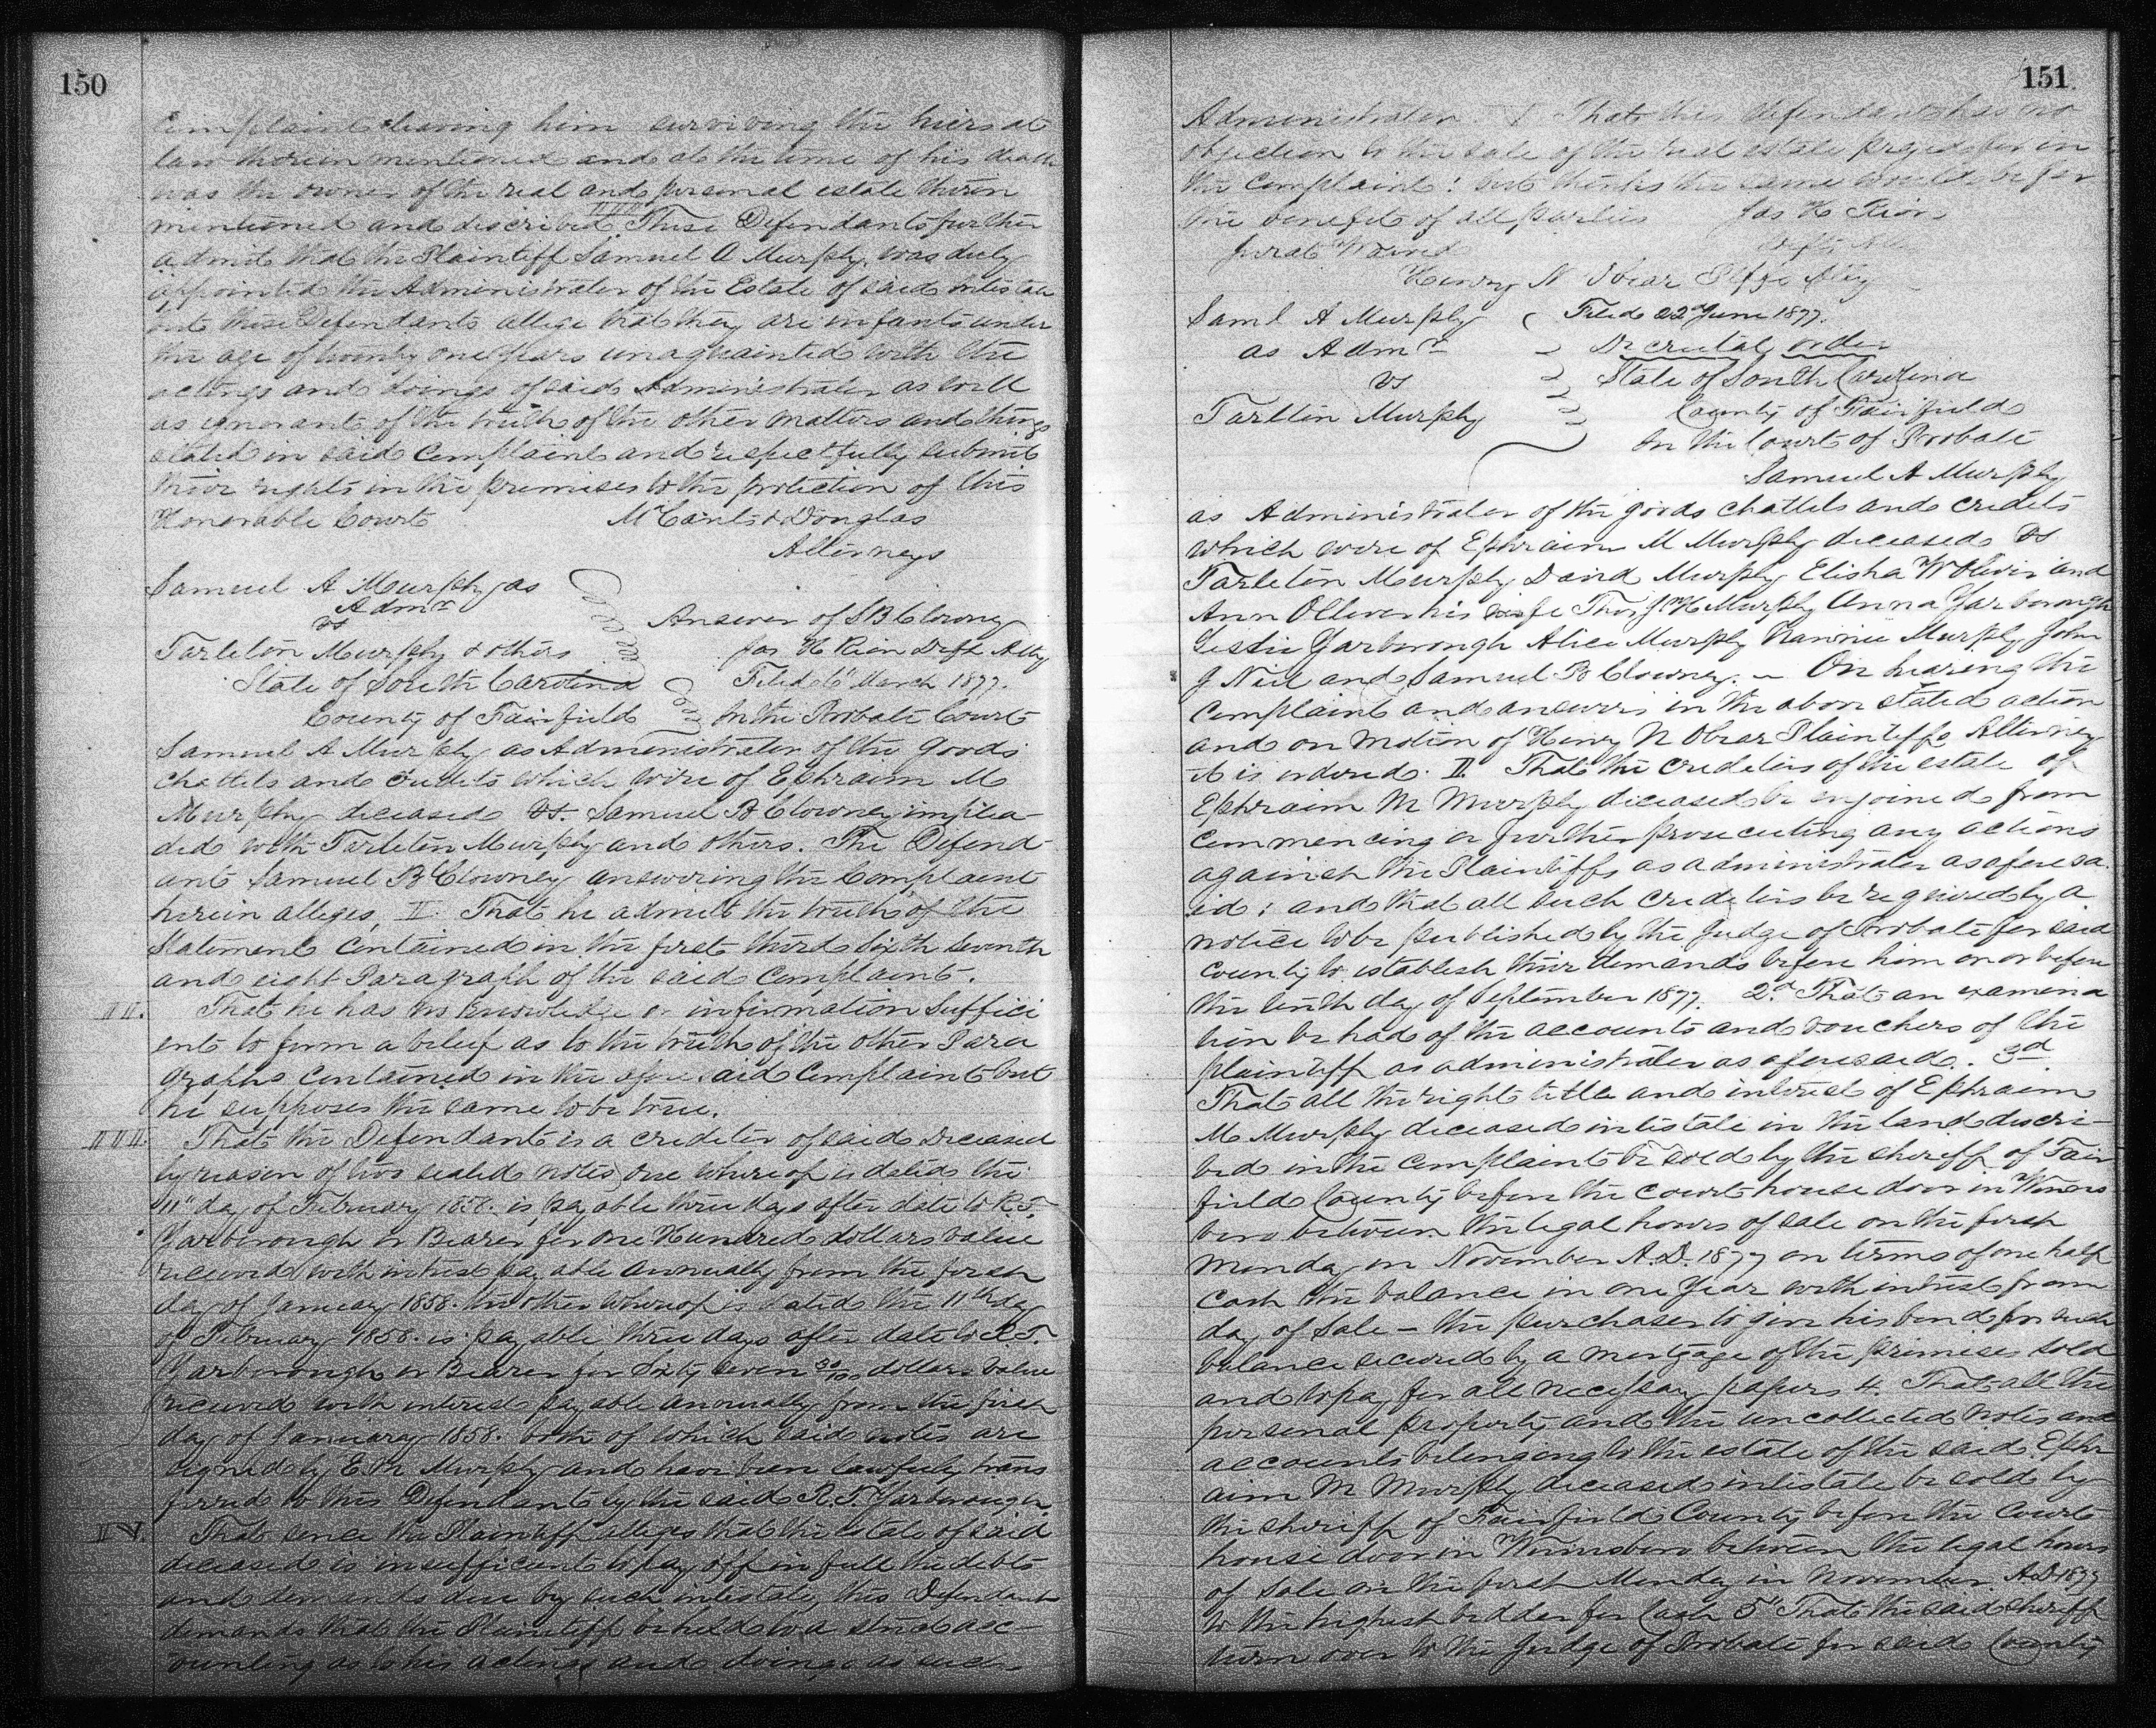 150
Complaint leaving him surviving the hiers at
law therein mentioned and at the time of his death
was the owner of the real and personal estate therein
mentioned and discribed. These Defendants further
admit that the Plaintiff Samuel A Murphy was duly
appointed the Administrator of the Estate of said intestate
but these Defendants allege that they are infants under
the age of twenty one years unaquainted with the
actings and doings of said Administrator as well
as ignorant of the truth of the other matters and things
stated in said Complaint and respectfully submit
their rights in the premises to the protection of this
Honorable Court McCants & Douglas
Attorneys
Samuel A Murphy as
Admr
vs Answer of S B Clowney
Tarleton Murphy & others Jas H Rion Deft Atty
State of South Carolina Filed 6" March 1877.
County of Fairfield In the Probate Court
Samuel A Murphy as Administrator of the Goods
Chattels and credits which were of Ephraim M
Murphy deceased vs. Samuel B Clowney implea-
ded with Tarleton Murphy and others. The Defend-
ant Samuel B Clowney answering the Complaint
herein alleges, I. That he admits the truth of the
Statement contained in the first third sixth seventh
and eight Paragraph of the said Complaint.
II. That he has no knowledge or information Suffici
ent to form a belief as to the truth of the other Para
graphs contained in the afore said Complaint but
he supposes the same to be true.
III. That the Defendant is a creditor of said Deceased
by reason of two sealed notes, one whereof is dated the
11" day of February 1858. is payable three days after date to R. T.
Yarborough or Bearer for One Hundred dollars value
received with intrest payable annually from the first
day of January 1858. the other whereof is dated the 11th day
of February 1858. is payable three days after date to R. T.
Yarborough or Bearer for Sixty seven 30/100 dollars value
received with interest payable annually from the first
day of January 1858. both of which said notes are
signed by E. M Murphy and have been lawfully trans
ferred to this Defendant by the said R. T. Yarborough.
IV. That since the Plaintiff alleges that the estate of said
deceased is insufficient to pay off in full the debts
and demands due by such intestate, this Defendant
demands that the Plaintiff be held to a strict acc-
ounting as to his actings and doings as such
151
Administrator V That this defendant has no
objection to the sale of the real estate prayed for in
the Complaint: but thinks the same would be for
the benefit of all parties Jas H Rion
Jurat Waived Defts Atty
Henry N Obear Plffs Atty
Saml A Murphy Filed 22d June 1877.
as Admr Decretal order
vs State of South Carolina
Tarlton Murphy County of Fairfield
In the Court of Probate
Samuel A Murphy
as Administrator of the goods chattels and credits
which were of Ephraim M Murphy deceased vs
Tarleton Murphy David Murphy Elisha W Oliver and
Ann Olliver his wife Thos J H Murphy Anna Yarborough
Lessie Yarborough Alice Murphy Nannie Murphy John
J Neil and Samuel B Clowney. – On hearing the
Complaint and answers in the above stated action
and on motion of Henry N Obear Plaintiffs Attorney
it is ordered. I. That the creditors of the estate of
Ephraim M Murphy deceased be enjoined from
Commencing or further prosecuting any actions
against the Plaintiff, as administrator as aforesa
id: and that all such creditors be required by a
notice to be published by the Judge of Probate for said
County to establish their demands before him on or before
the tenth day of September 1877. 2d. That an examina
tion be had of the accounts and vouchers of the
plaintiff as administrator as aforesaid. 3d.
That all the right title and interest of Ephraim
M Murphy deceased intestate in the land discri-
bed in the Complaint be sold by the sheriff of Fair
field County before the court house door in Winns
boro between the legal hours of sale on the first
monday in November A.D. 1877 on terms of one half
Cash the balance in one year with intrest from
day of Sale – the purchaser to give his bond for such
balance secured by a mortgage of the premises sold
and to pay for all necessary papers 4. That all the
personal property and the uncollected notes and
accounts belonging to the estate of the said Ephr
aim M Murphy deceased intestate be sold by
the sheriff of Fairfield County before the Court
house door in Winnsboro between the legal hours
of Sale on the first Monday in November. A.D. 1877
to the highest bidder for Cash 5" That the said sheriff
turn over to the Judge of Probate for said County